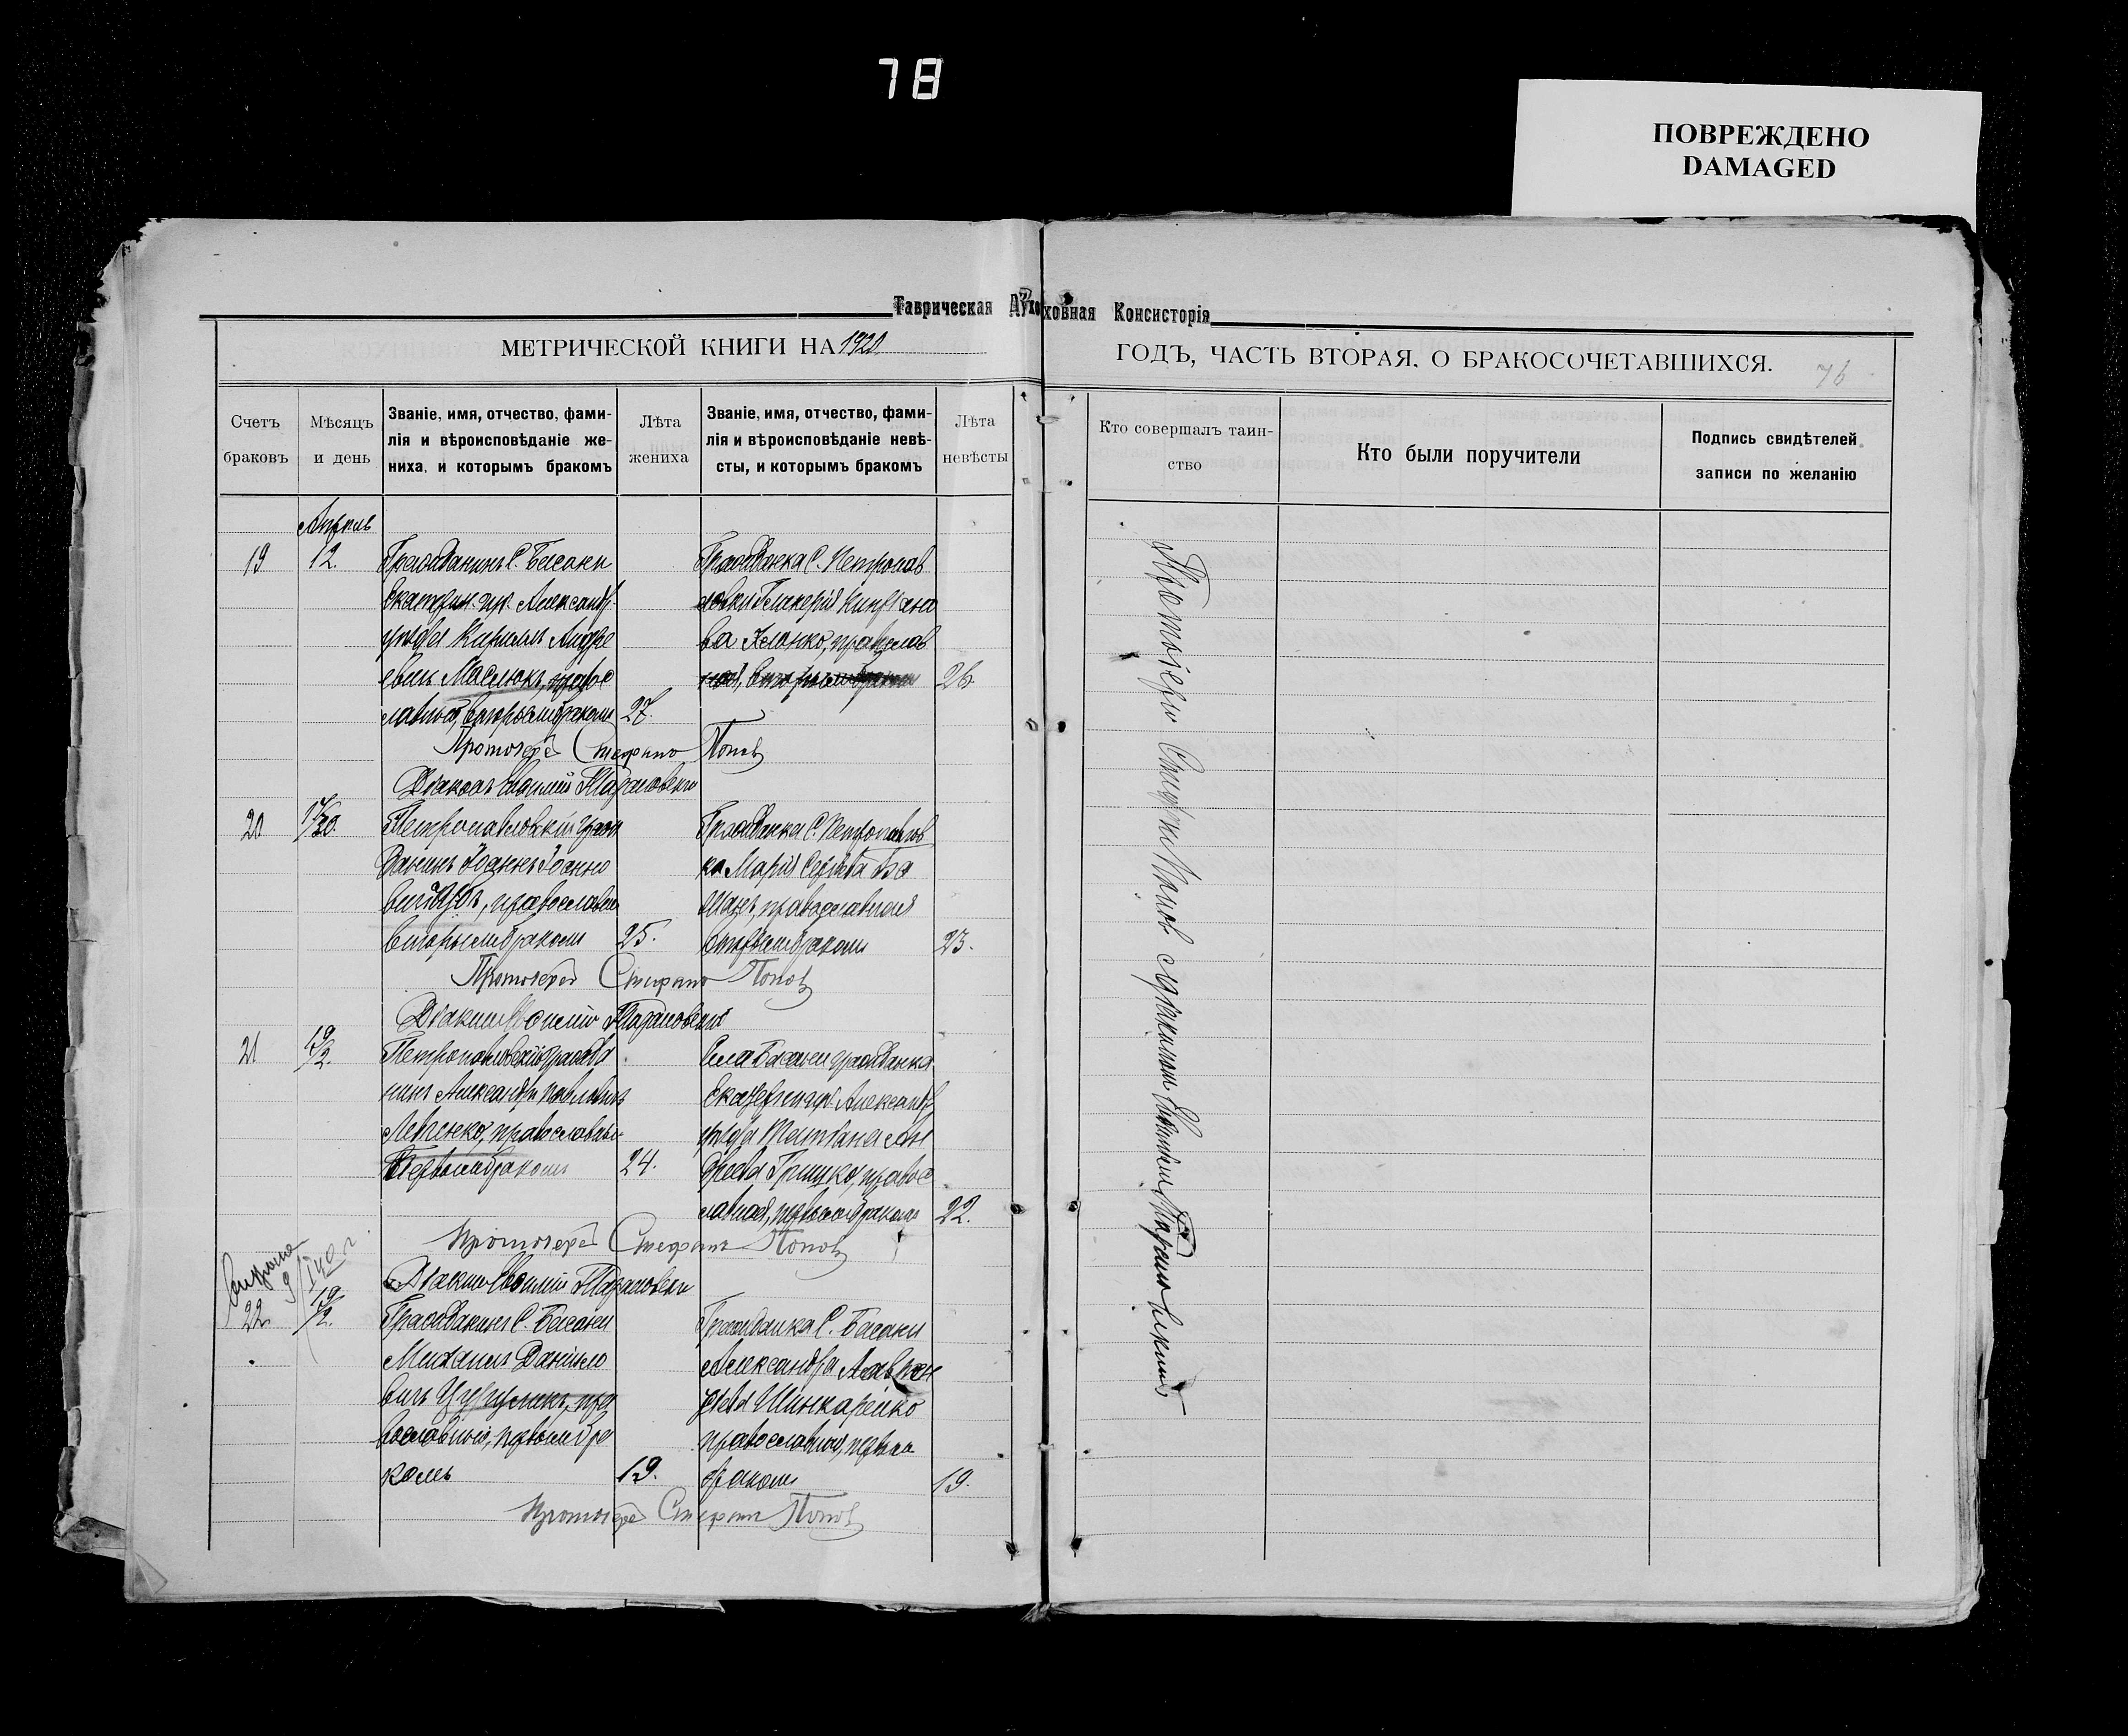 78
ПОВРЕЖДЕНО
DAMAGED
Таврическая Духовная Консисторія
МЕТРИЧЕСКОЙ КНИГИ НА 1920
ГОДЪ, ЧАСТЬ ВТОРАЯ, О БРАКОСОЧЕТАВШИХСЯ.
76
Счетъ браковъ
Мѣсяцъ и день
Званіе, имя, отчество, фами-
лія и вѣроисповѣданіе же-
ниха, и которымъ бракомъ
Лѣта жениха
Званіе, имя, отчество, фами-
лія и вѣроисповѣданіе невѣ-
сты, и которымъ бракомъ
Лѣта невѣсты
Кто совершалъ таин-
ство
Кто были поручители
Подпись свидѣтелей
записи по желанію
Апрѣль
19
12.
Гражданинъ С. Басани
Екатерин. губ. Александр.
уѣзда Кириллъ Андре
евичъ Маслюкъ, правос
лавный, вторымъ бракомъ
27.
Гражданка С. Петропав
ловки Гликерія
ва православ
ная,
26.
Протоіерей Стефанъ Поповъ
Діаконъ Тарановскій
20
17/30.
Петропавловскій граж
данинъ Іоаннъ Іоанно
вичъ православн
вторымъ бракомъ
25.
Гражданка С. Петропавлов
ка Марія
православная
бракомъ
23.
Протоіерей Стефанъ Поповъ
Діаконъ Тарановскій
21
19/2.
Петропавловскій гражда
нинъ Александръ Павловичъ
Левченко, православны
Первымъ бракомъ
24.
Села Басани гражданка
Екатерин. губ. Александр
уѣзда Татіана Ан
дреева Грицко, правос
лавная, первымъ бракомъ
22.
Протоіерей Стефанъ Поповъ
Діаконъ Тарановскій
22.
19/2.
Гражданинъ С. Басани
Михаилъ Даніило
вичъ пра
вославный, первымъ бра
комъ
19.
Гражданка С. Басани
Александра
Шинкаренко
православная, первым
бракомъ
19.
Протоіерей Стефанъ Поповъ
Протоіерей Стефанъ Поповъ съ діакономъ Тарановскимъ